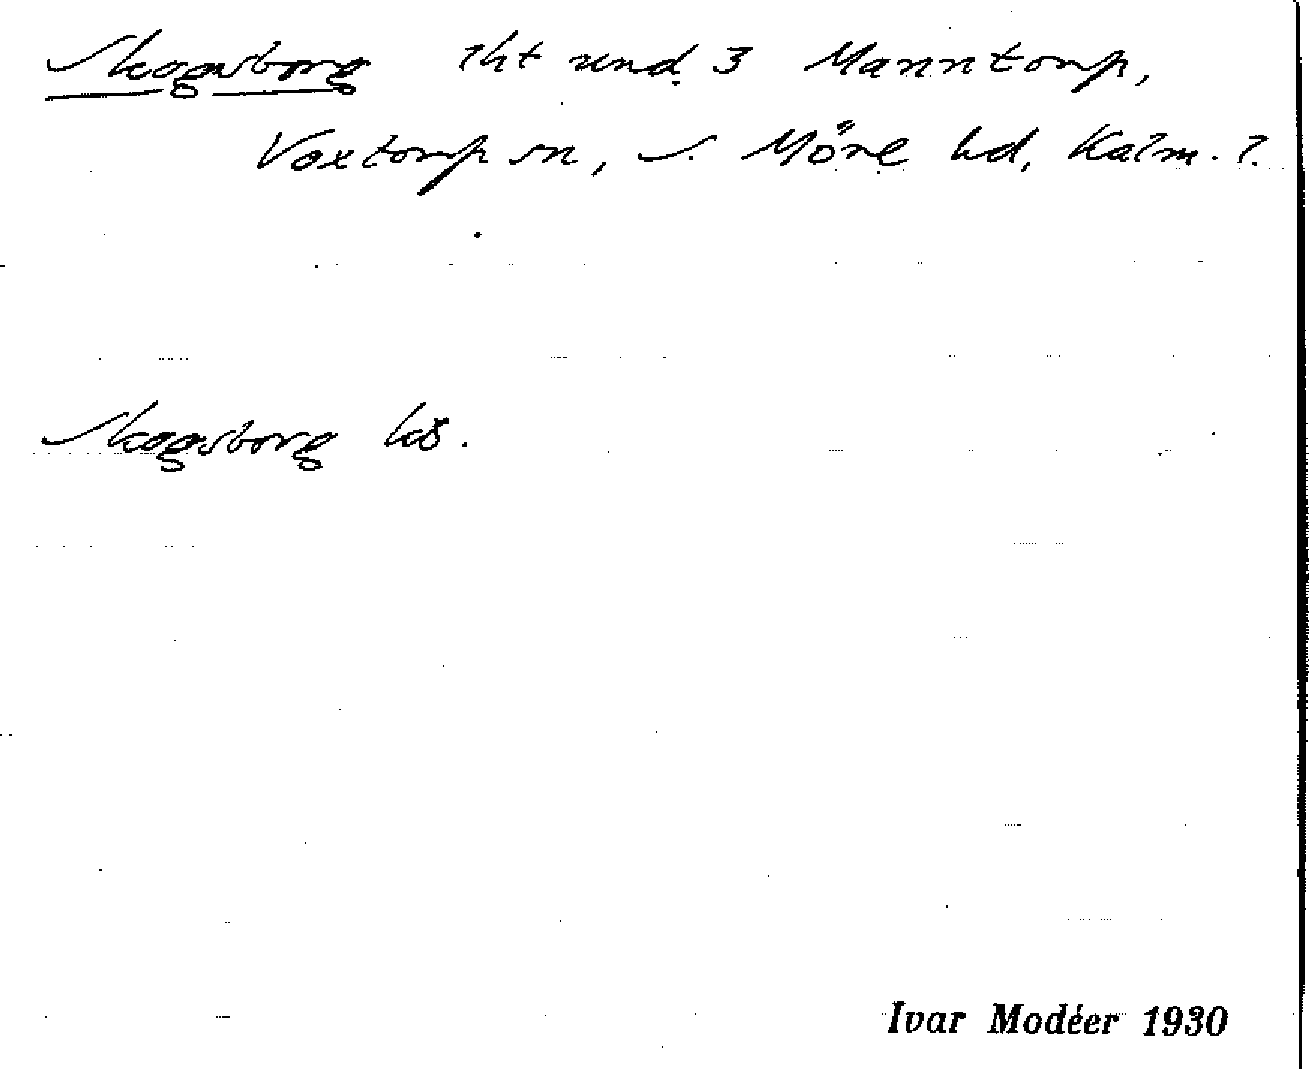 Skogsborg lht und. 3 Manntorp,
Voxtorp sn, S. Möre hd, Kalm. l.
Skogsborg ks.
Ivar Modéer 1930